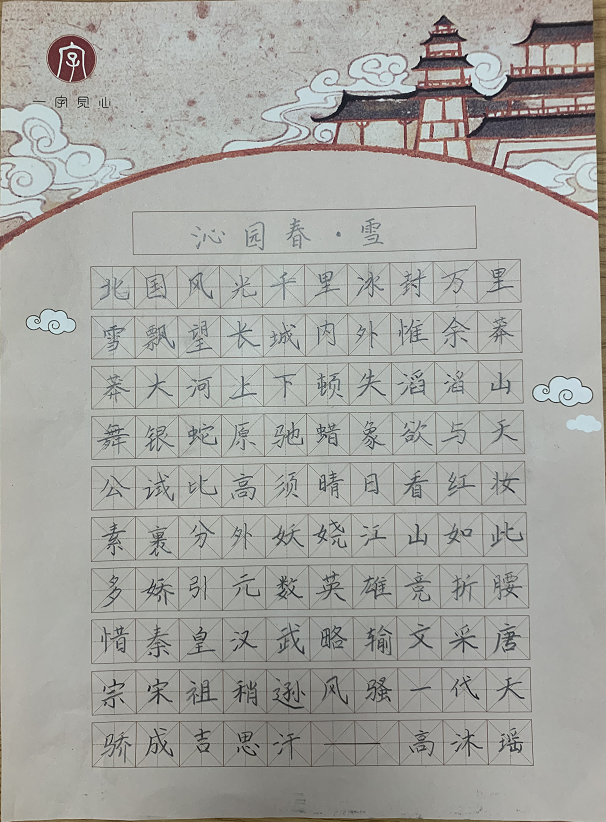 字
一字见心
沁园春·雪
北国风光千里冰封万里
雪飘望长城内外惟余莽
莽大河上下顿失滔滔山
舞银蛇原驰蜡象欲与天
公试比高须晴日看红妆
素裹分外妖娆江山如此
多娇引元数英雄竞折腰
惜秦皇汉武略输文采唐
宗宋祖稍逊风骚一代天
骄成吉思汗——高沐瑶